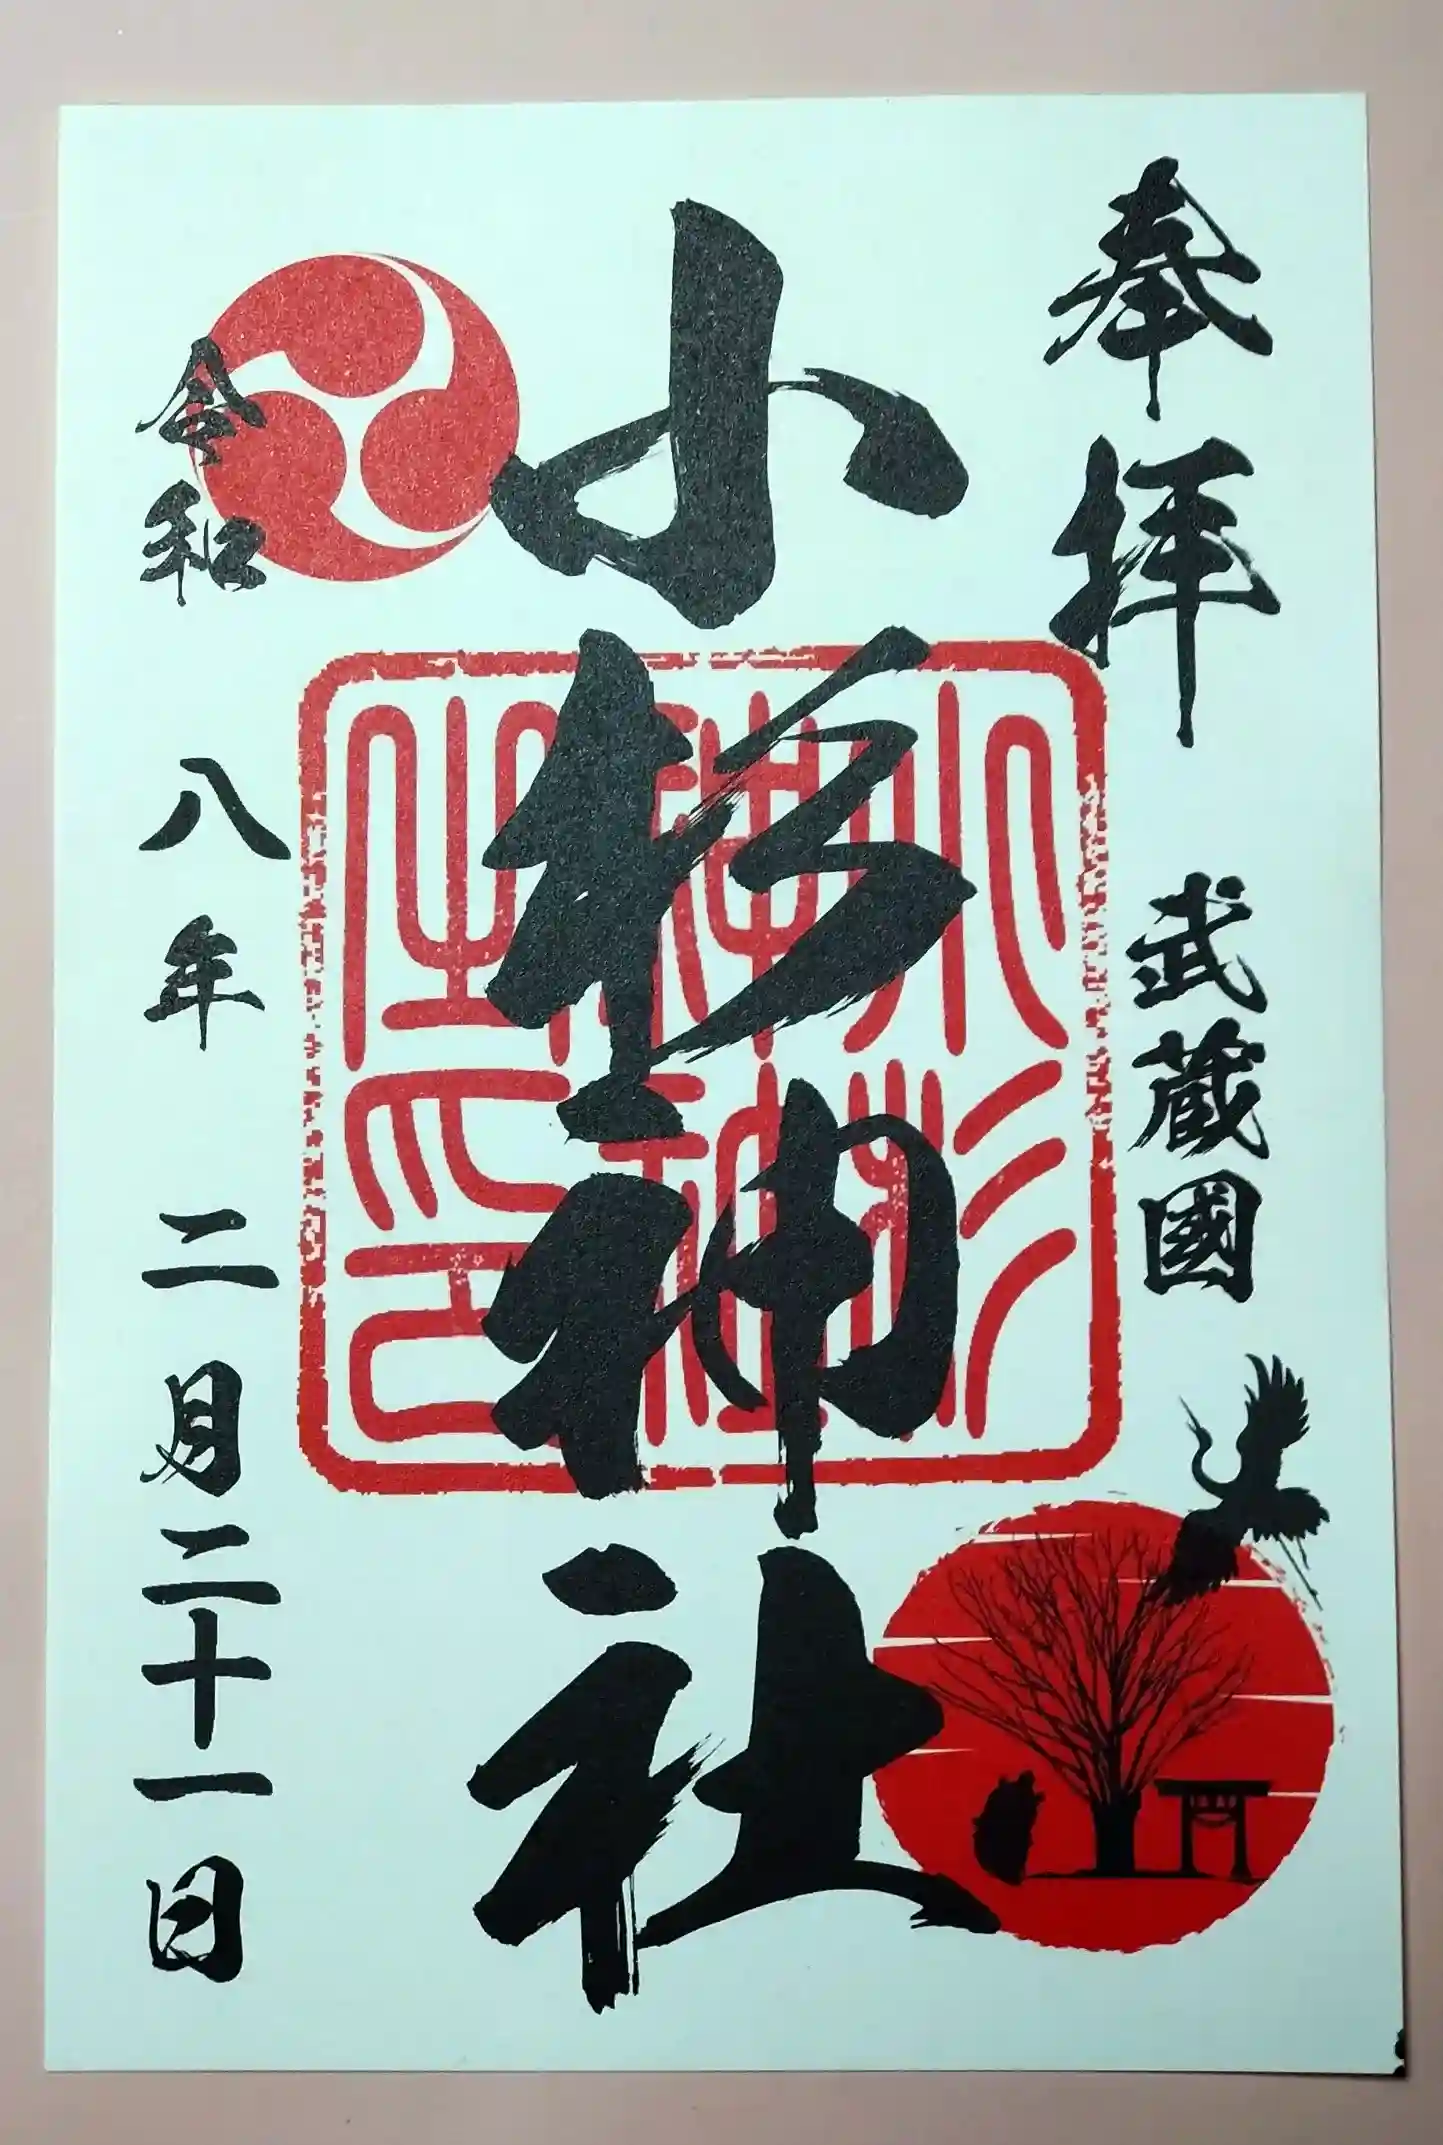 奉拝
武蔵國
小杉神社
小杉
神社
之印
令和八年二月二十一日